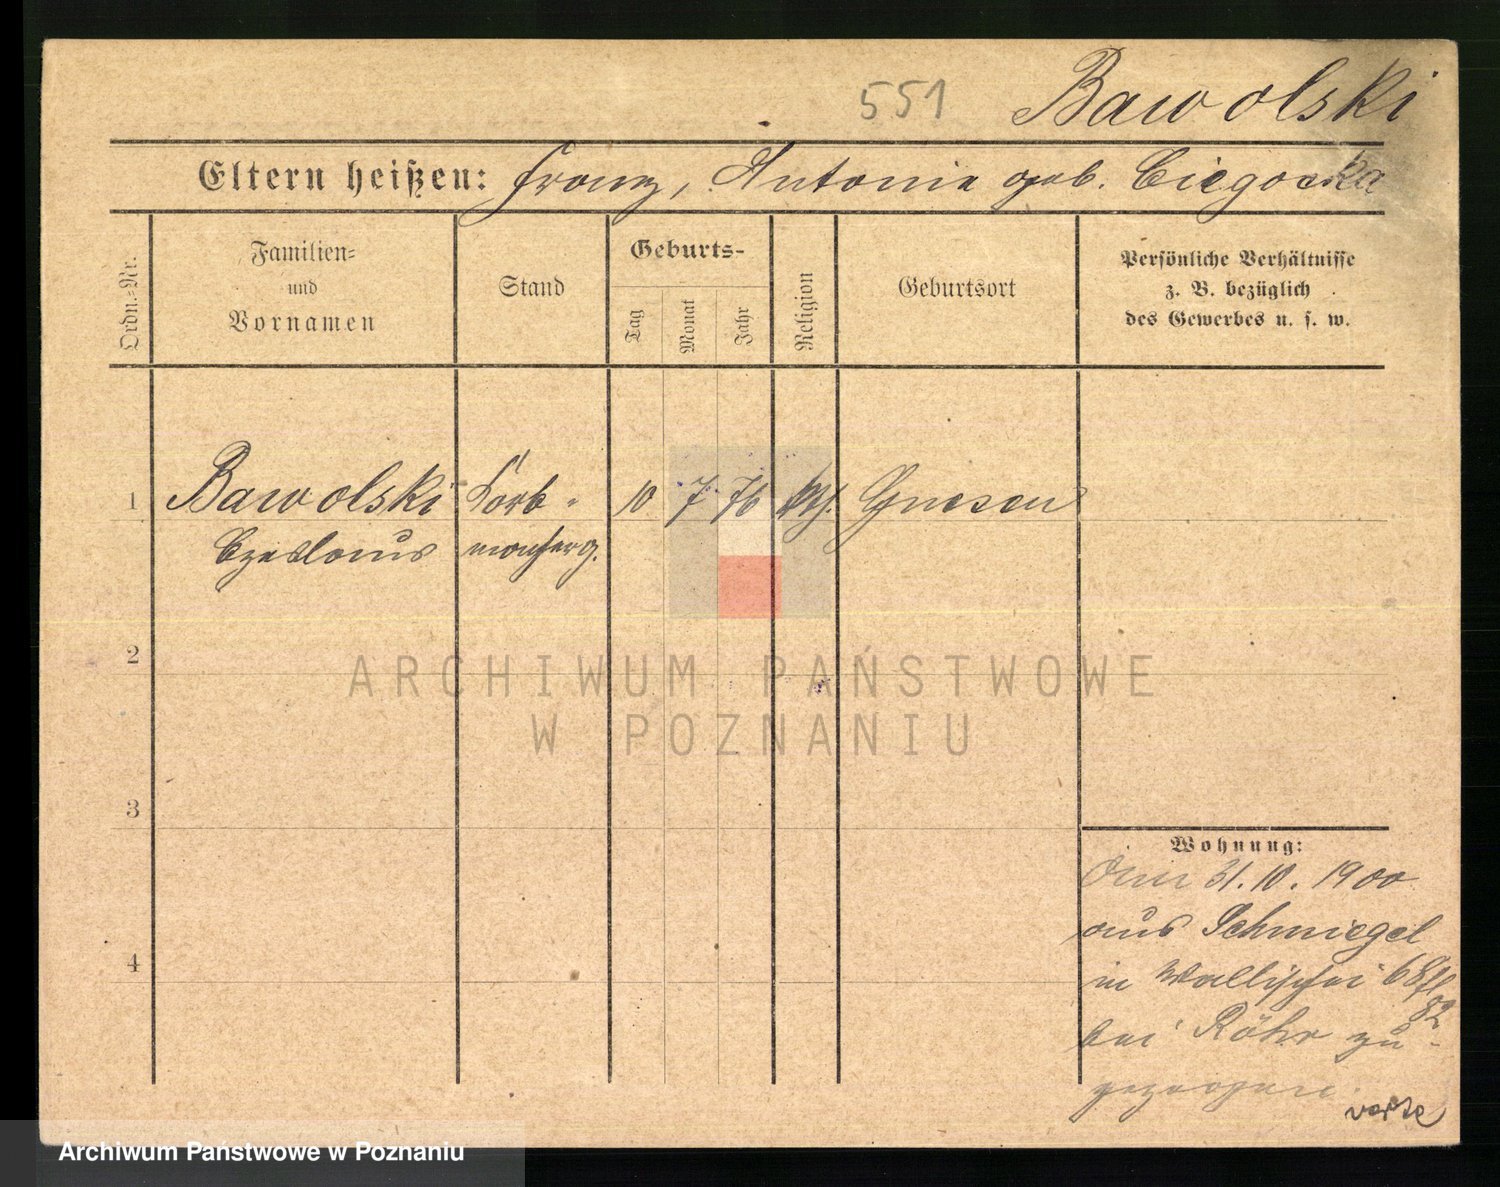 551 Bawolski
Eltern heißen: Franz, Antonie geb. Ciegocka
Ordn.-Nr.
Familien-
und
Vornamen
Stand
Geburts-
Tag
Monat
Jahr
Religion
Geburtsort
Persönliche Verhältnisse
z. B. bezüglich
des Gewerbes u. s. w.
1 Bawolski Korb- 10 7 76 kth. Gnesen
Czeslaus macherg.
2
3
4
ARCHIWUM PAŃSTWOWE
W POZNANIU
Wohnung:
31. 10. 1900
aus Schmiegel
in Wallischei 68/
bei Röhr zu-
gezogen.
Archiwum Państwowe w Poznaniu